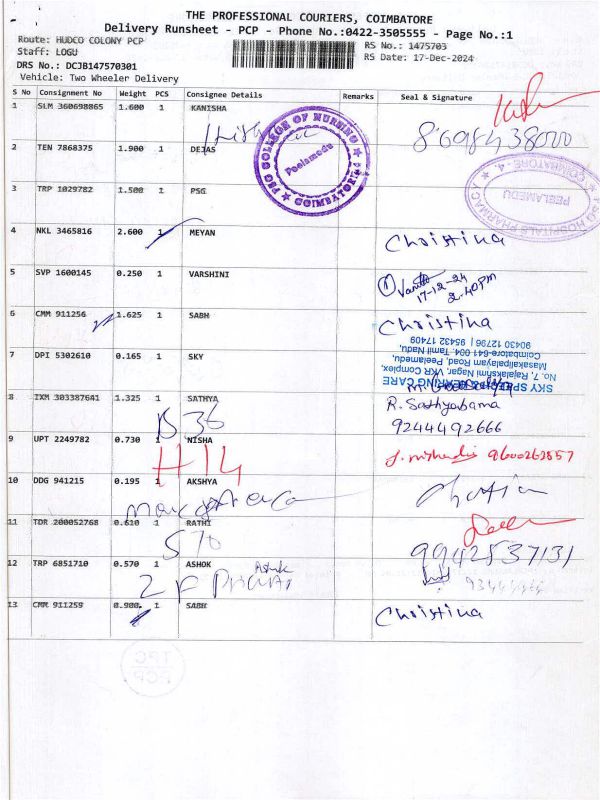 THE PROFESSIONAL COURIERS, COIMBATORE
Delivery Runsheet - PCP - Phone No.:0422-3505555 - Page No.:1
Route: HUDCO COLONY PCP
RS No.: 1475703
Staff: LOGU
RS Date: 17-Dec-2024
DRS No.: DCJB147570301
Vehicle: Two Wheeler Delivery
S No Consignment No Weight PCS Consignee Details Remarks Seal & Signature
1 SLM 360698865 1.600 1 KANISHA
2 TEN 7868375 1.900 1 DEJAS
PSG COLLEGE OF NURSING
Peelamedu
COIMBATORE
3 TRP 1029782 1.500 1 PSG
PSG HOSPITALS PHARMACY
PEELAMEDU
COIMBATORE - 4
4 NKL 3465816 2.600 1 MEYAN Christina
5 SVP 1600145 0.250 1 VARSHINI
17-12-24
2.40PM
6 CMM 911256 1.625 1 SABH Christina
7 DPI 5302610 0.165 1 SKY
SKY SPEECH & HEARING CARE
No. 7, Rajalakshmi Nagar, VKR Complex,
Masakalipalayam Road, Peelamedu,
Coimbatore-641 004. Tamil Nadu
90430 12796 | 95432 17409
8 IXM 303387641 1.325 1 SATHYA R. Sathyabama
B 36 9244492666
9 UPT 2249782 0.730 1 NISHA 9600263857
H14
10 DDG 941215 0.195 1 AKSHYA
11 TDR 200052768 0.610 1 RATHI
570 9942537131
12 TRP 6851710 0.570 1 ASHOK
2F
13 CMM 911259 0.900 1 SABH Christina